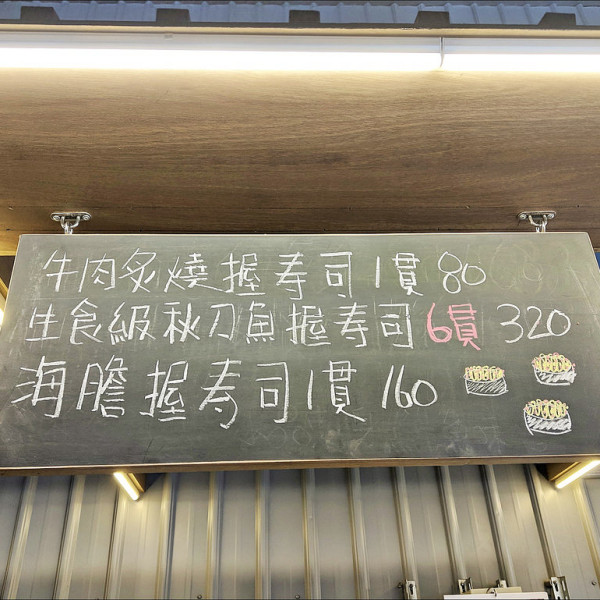 牛肉炙燒握寿司1貫80
生食級秋刀魚握寿司6貫 320
海膽握寿司1貫 160